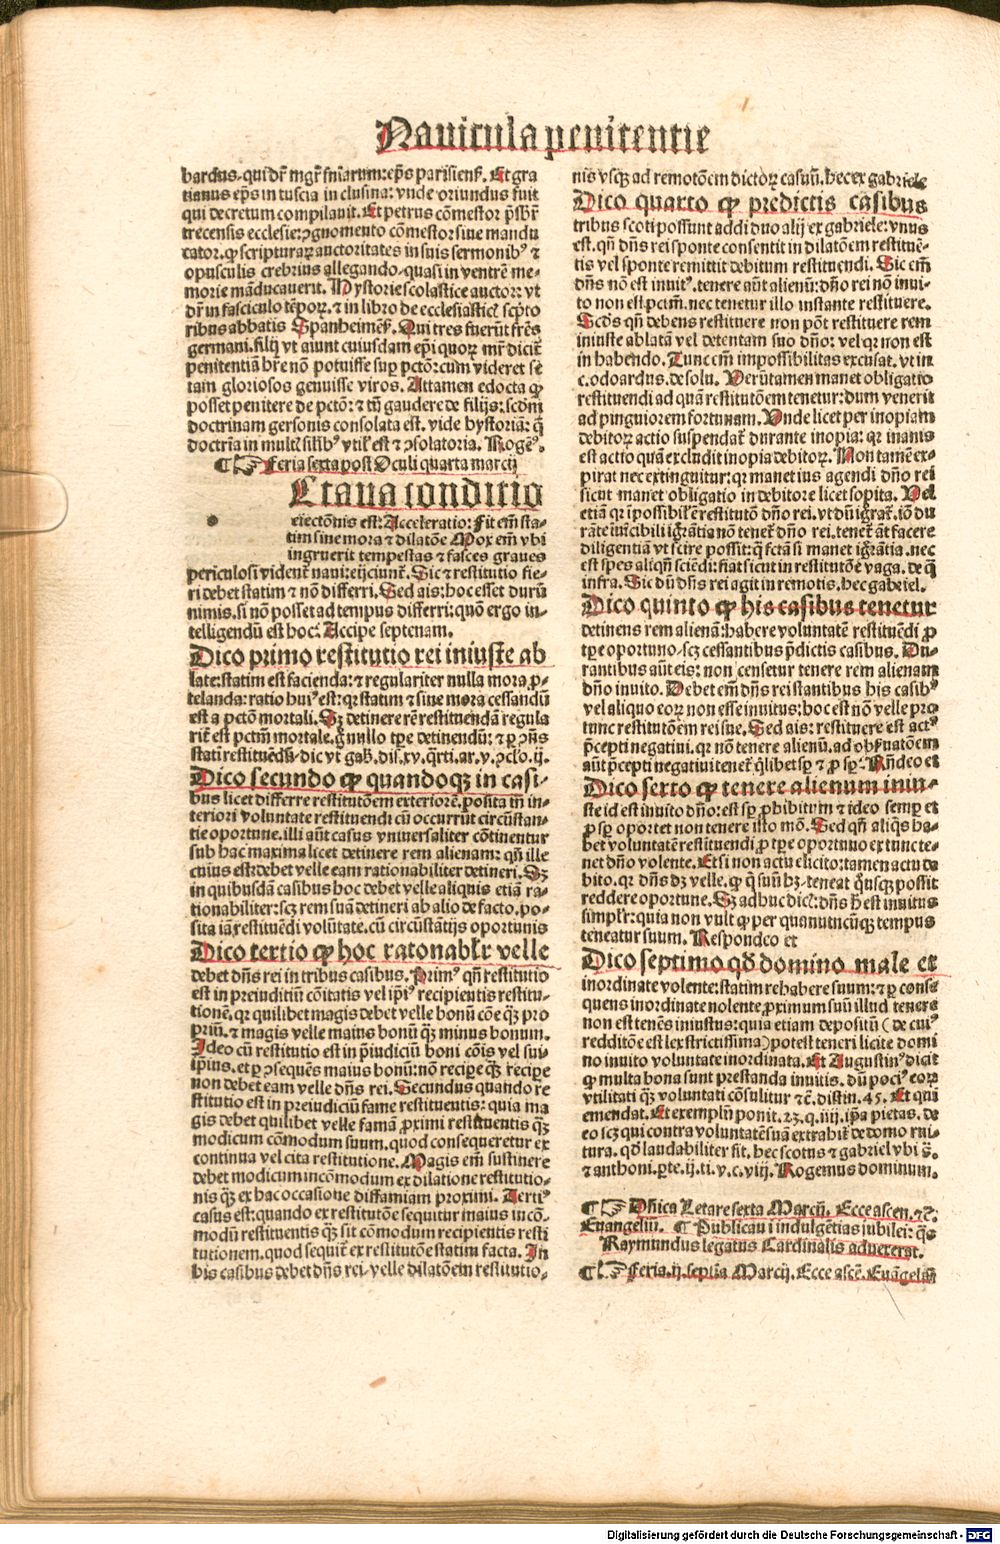 Nauicula penitentie
bardus. qui dr̄ mgr̄ sniarum: ep̄s parisienſ. Et gra
tianus ep̄s in tuscia in clusina: vnde oriundus fuit
qui decretum compilauit. Et petrus cōmestor p̄sbr̄
trecensis ecclesie: ꝯgnomento cōmestor siue mandu
cator. ꝙ scripturaꝝ auctoritates in suis sermonibꝰ ⁊
opusculis crebrius allegando. quasi in ventrē me⸗
morie māducauerit. Hystorie scolastice auctor: vt
dr̄ in fasciculo tēpoꝝ. ⁊ in libro de ecclesiasticꝭ scpto
ribus abbatis Spanheimeñ. Qui tres fuerūt fr̄es
germani. filij vt aiunt cuiusdam ep̄i quoꝝ mr̄ dicit̄
penitentiā hr̄e nō potuisse suꝑ pctō: cum videret se
tam gloriosos genuisse viros. Attamen edocta ꝙ
posset penitere de pctō: ⁊ tn̄ gaudere de filijs: scd̄m
doctrinam gersonis consolata est. vide hystoriā: q̄
doctrīa in multꝭ sil̄ibꝰ vtilꝭ est ⁊ ꝯsolatoria. Rogeꝰ.
¶ ☞ Feria sexta post Oculi quarta marcij
Ctaua conditio
eiectōnis est: Acceleratio: Fit em̄ sta⸗
tim sine mora ⁊ dilatōe Mox em̄ vbi
ingruerit tempestas ⁊ fasces graues
periculosi vident̄ naui: eijciunt̄. Sic ⁊ restitutio fie⸗
ri debet statim ⁊ nō differri. Sed ais: hoc esset durū
nimis. si nō posset ad tempus differri: quō ergo in⸗
telligendū est hoc. Accipe septenam.
Dico primo restitutio rei iniuste ab
late: statim est facienda: ⁊ regulariter nulla mora ꝓ⸗
telanda: ratio huiꝰ est: qꝛ statim ⁊ sine mora cessandū
est a pctō mortali. Sꝫ detinere rē restituendā regula
rit̄ est pctm̄ mortale. gͦ nullo tꝑe detinendū: ⁊ ꝑ ꝯn̄s
stati restituēdū. dic vt gab. dis. xv. q̄rti. ar. v. ꝯclo. ij.
Dico secundo ꝙ quandoqꝫ in casi⸗
bus licet differre restitutōem exteriorē. posita tn̄ in⸗
teriori voluntate restituendi cū occurrūt circūstan⸗
tie oportune. illi aūt casus vniuersaliter cōtinentur
sub hac maxima licet detinere rem alienam: qn̄ ille
cuius est debet velle eam rationabiliter detineri. Sꝫ
in quibusdā casibus hoc debet velle aliquis etiā ra⸗
tionabiliter: scꝫ rem suā detineri ab alio de facto. po⸗
sita iā restituēdi volūtate. cū circūstātijs oportunis
Dico tertio ꝙ hoc ratonabl̄r velle
debet dn̄s rei in tribus casibus. Primꝰ qn̄ restitutio
est in preiuditiū cōitatis vel ip̄iꝰ recipientis restitu⸗
tionē. qꝛ quilibet magis debet velle bonū cōe qꝫ pro
priū. ⁊ magis velle maius bonū qꝫ minus bonum.
Ideo cū restitutio est in p̄iudiciū boni cōis vel sui⸗
ip̄ius. et ꝑ ꝯsequēs maius bonū: nō recipe qꝫ recipe
non debet eam velle dn̄s rei. Secundus quando re
stitutio est in preiudiciū fame restituentis: quia ma
gis debet quilibet velle famā ꝓximi restituentis qꝫ
modicum cōmodum suum. quod consequeretur ex
continua vel cita restitutione. Magis em̄ sustinere
debet modicum incōmodum ex dilatione restitutio⸗
nis qꝫ ex hac occasione diffamiam proximi. Tertiꝰ
casus est: quando ex restitutōe sequitur maius incō⸗
modū restituentis qꝫ sit cōmodum recipientis resti
tutionem. quod sequit̄ ex restitutōe statim facta. In
his casibus debet dn̄s rei. velle dilatōem restitutio⸗
nis vsqꝫ ad remotōem dictoꝝ casuū. hec ex gabriele
Dico quarto ꝙ predictis casibus
tribus scoti possunt addi duo alij ex gabriele: vnus
est. qn̄ dn̄s rei sponte consentit in dilatōem restituē⸗
tis vel sponte remittit debitum restituendi. Sic em̄
dn̄s nō est inuitꝰ. tenere aūt alienū: dn̄o rei nō inui⸗
to non est pctm̄. nec tenetur illo instante restituere.
Scd̄s qn̄ debens restituere non pōt restituere rem
iniuste ablatā vel detentam suo dn̄o: vel qꝛ non est
in habendo. Tunc em̄ impossibilitas excusat. vt in
c. odoardus. de solu. Verūtamen manet obligatio
restituendi ad quā restitutōem tenetur: dum venerit
ad pinguiorem fortunam. Unde licet per inopiam
debitoꝝ actio suspendat̄ durante inopia: qꝛ inanis
est actio quā excludit inopia debitoꝝ. Non tamē ex⸗
pirat nec extinguitur: qꝛ manet ius agendi dn̄o rei
sicut manet obligatio in debitore licet sopita. Vel
etiā qꝛ īpossibilꝭ est restitutō dn̄o rei. vt dū īgrat̄. iō du
rāte īuīcibili īgrātia nō tenet̄ dn̄o rei. tenet̄ āt facere
diligentiā vt scire possit: q̄ fctā si manet īgrātia. nec
est spes aliqn̄ sciēdi: fiat sicut in restitutōe vaga. de q̄
infra. Sic dū dn̄s rei agit in remotis. hec gabriel.
Dico quinto ꝙ his casibus tenetur
detinens rem alienā: habere voluntatē restituēdi ꝓ
tꝑe oportuno. scꝫ cessantibus p̄dictis casibus. Du⸗
rantibus aūt eis: non censetur tenere rem alienam
dn̄o inuito. Debet em̄ dn̄s rei stantibus his casibꝰ
vel aliquo eoꝝ non esse inuitus: hoc est nō velle pro
tunc restitutōem rei sue. Sed ais: restituere est actꝰ
p̄cepti negatiui. qꝛ nō tenere alienū. ad obseruatōem
aūt p̄cepti negatiui tenet̄ q̄libet sꝑ ⁊ ꝓ sꝑ. Rn̄deo et
Dico sexto ꝙ tenere alienum iniu⸗
ste id est inuito dn̄o: est sꝑ ꝓhibitum ⁊ ideo semꝑ et
ꝓ sꝑ oportet non tenere isto mō. Sed qn̄ aliqꝭs ha⸗
bet voluntatē restituendi ꝓ tꝑe oportuno ex tunc te⸗
net dn̄o volente. Etsi non actu elicito: tamen actu de
bito. qꝛ dn̄s dꝫ velle. ꝙ q̄ suū hꝫ. teneat q̄usqꝫ possit
reddere oportune. Sꝫ adhuc dicꝭ: dn̄s h̄ est inuitus
simplr̄: quia non vult ꝙ per quantucūqꝫ tempus
teneatur suum. Respondeo et
Dico septimo qd̄ domino male et
inordinate volente: statim rehabere suum: ⁊ ꝑ conse
quens inordinate nolente. proximum suū illud tenere
non est tenēs iniustus: quia etiam depositū (de cuiꝰ
redditōe est lex strictissima) potest teneri licite domi
no inuito voluntate inordinata. Et Augustinꝰ dicit
ꝙ multa bona sunt prestanda inuitis. dū pociꝰ eoꝝ
vtilitati qꝫ voluntati cōsulitur ⁊c̄. distin. 45. Et qui
emendat. Et exemplū ponit. 23. q. iiij. ip̄a pietas. de
eo scꝫ qui contra voluntatē suā extrahit̄ de domo rui⸗
tura. qd̄ laudabiliter fit. hec scotus ⁊ gabriel vbi s̄.
⁊ anthoni. ꝑte. ij. ti. v. c. viij. Rogemus dominum.
¶ ☞ Dn̄ica Letare sexta Marcij. Ecce ascen. ⁊c̄.
Euangeliū. ¶ Publicaui indulgētias iubilei: q̄s
Raymundus legatus Cardinalis aduexerat.
¶ ☞ Feria. ij. septīa Marcij. Ecce ascē. Euāgeliū
Digitalisierung gefördert durch die Deutsche Forschungsgemeinschaft - DFG